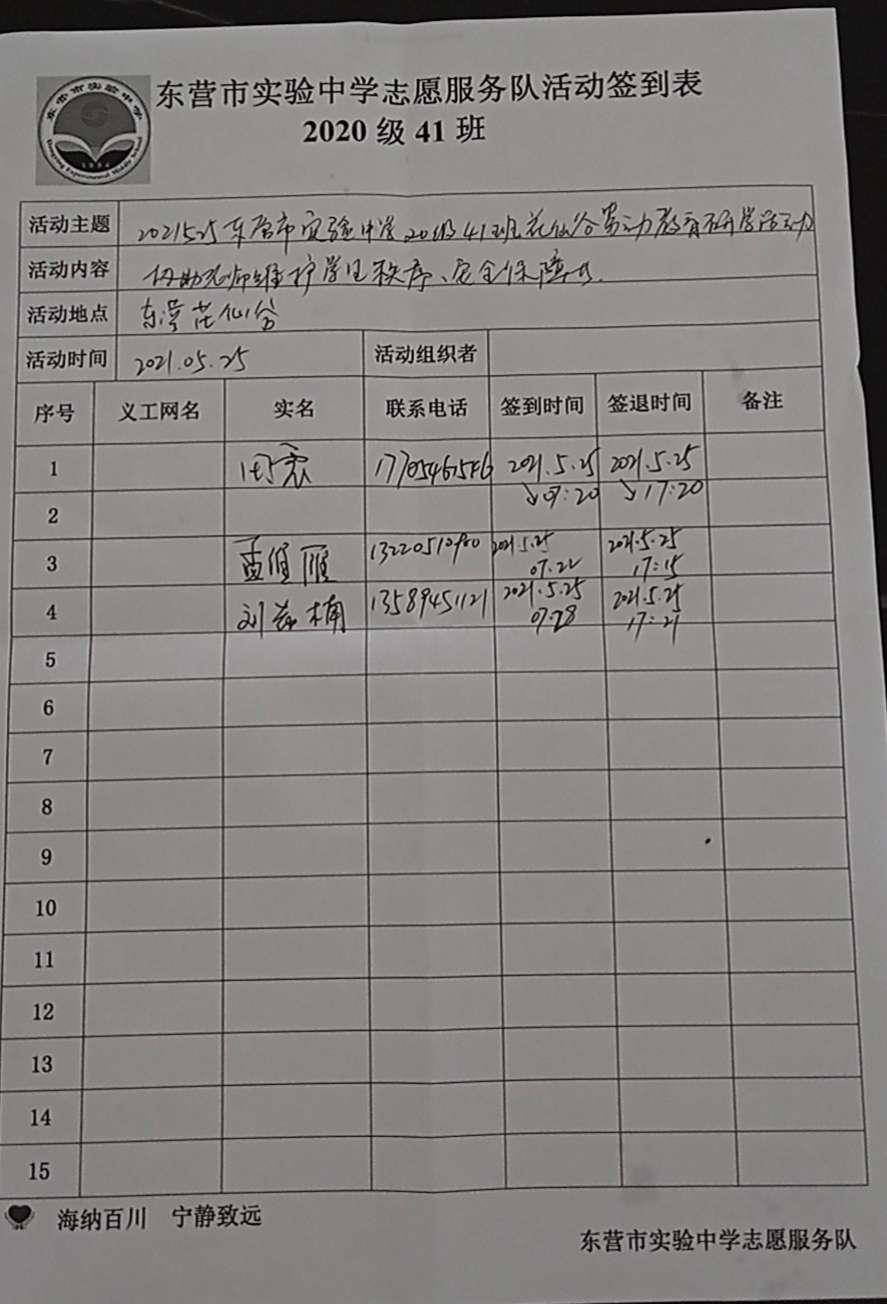 东营市实验中学志愿服务队活动签到表
2020 级 41 班
活动主题 2021525东营市实验中学20级41班花仙谷劳动教育研学活动
活动内容 协助老师维护学生秩序、安全保障
活动地点 东营花仙谷
活动时间 2021.05.25 活动组织者
序号 义工网名 实名 联系电话 签到时间 签退时间 备注
1 2021.5.25 2021.5.25
07:20 17:20
2
3 孟 雁 2021.5.25 2021.5.25
07:22 17:15
4 刘 楠 13589451121 2021.5.25 2021.5.25
07:28 17:21
5
6
7
8
9
10
11
12
13
14
15
海纳百川 宁静致远
东营市实验中学志愿服务队